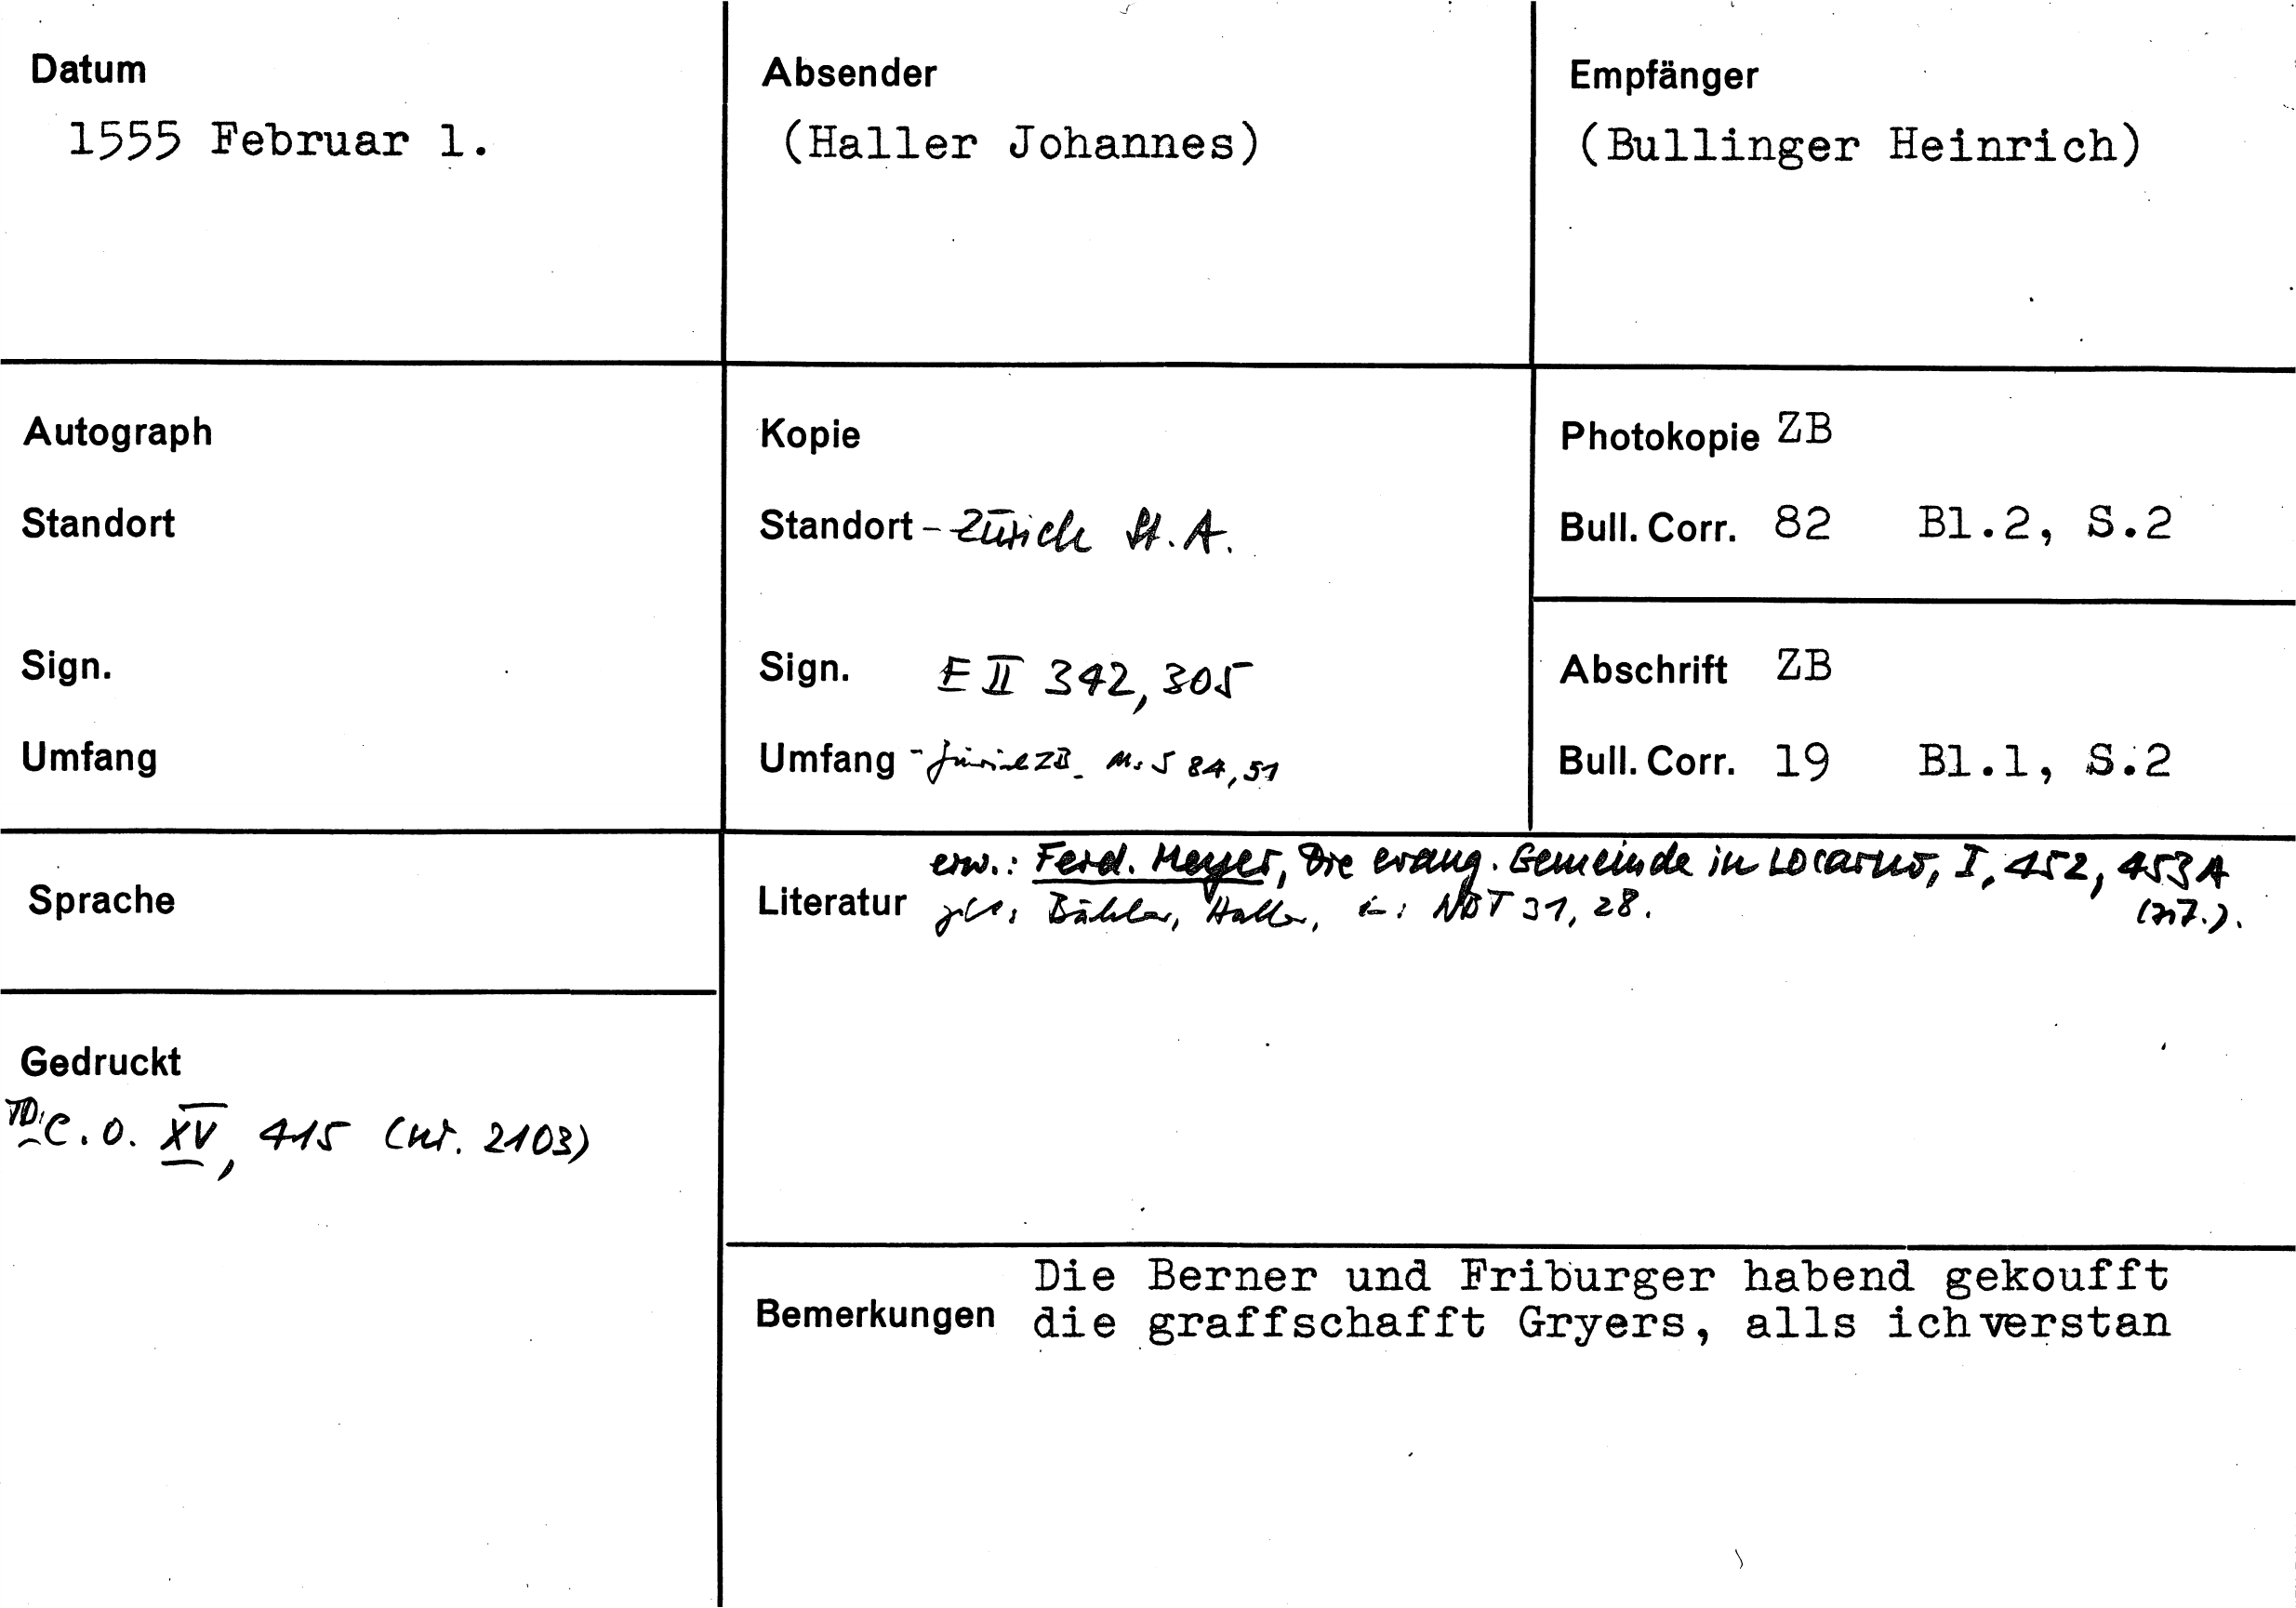 Datum
1555 Februar 1.
Absender
(Haller Johannes)
Empfänger
(Bullinger Heinrich)
Autograph
Standort
Sign.
Umfang
Kopie
Standort - Zürich St. A.
Sign. E II 342, 305
Umfang - Zürich ZB. Ms S 84, 51
Photokopie ZB
Bull. Corr. 82 Bl.2, S.2
Abschrift ZB
Bull. Corr. 19 Bl.1, S.2
Sprache
Gedruckt
C. O. XV, 415 (Nr. 2103)
erw.: Ferd. Meyer, Die evang. Gemeinde in Locarno, I, 452, 453 A
Literatur Bähler, Haller, in: NBT 31, 28.
Die Berner und Friburger habend gekoufft
Bemerkungen die graffschafft Gryers, alls ich verstan